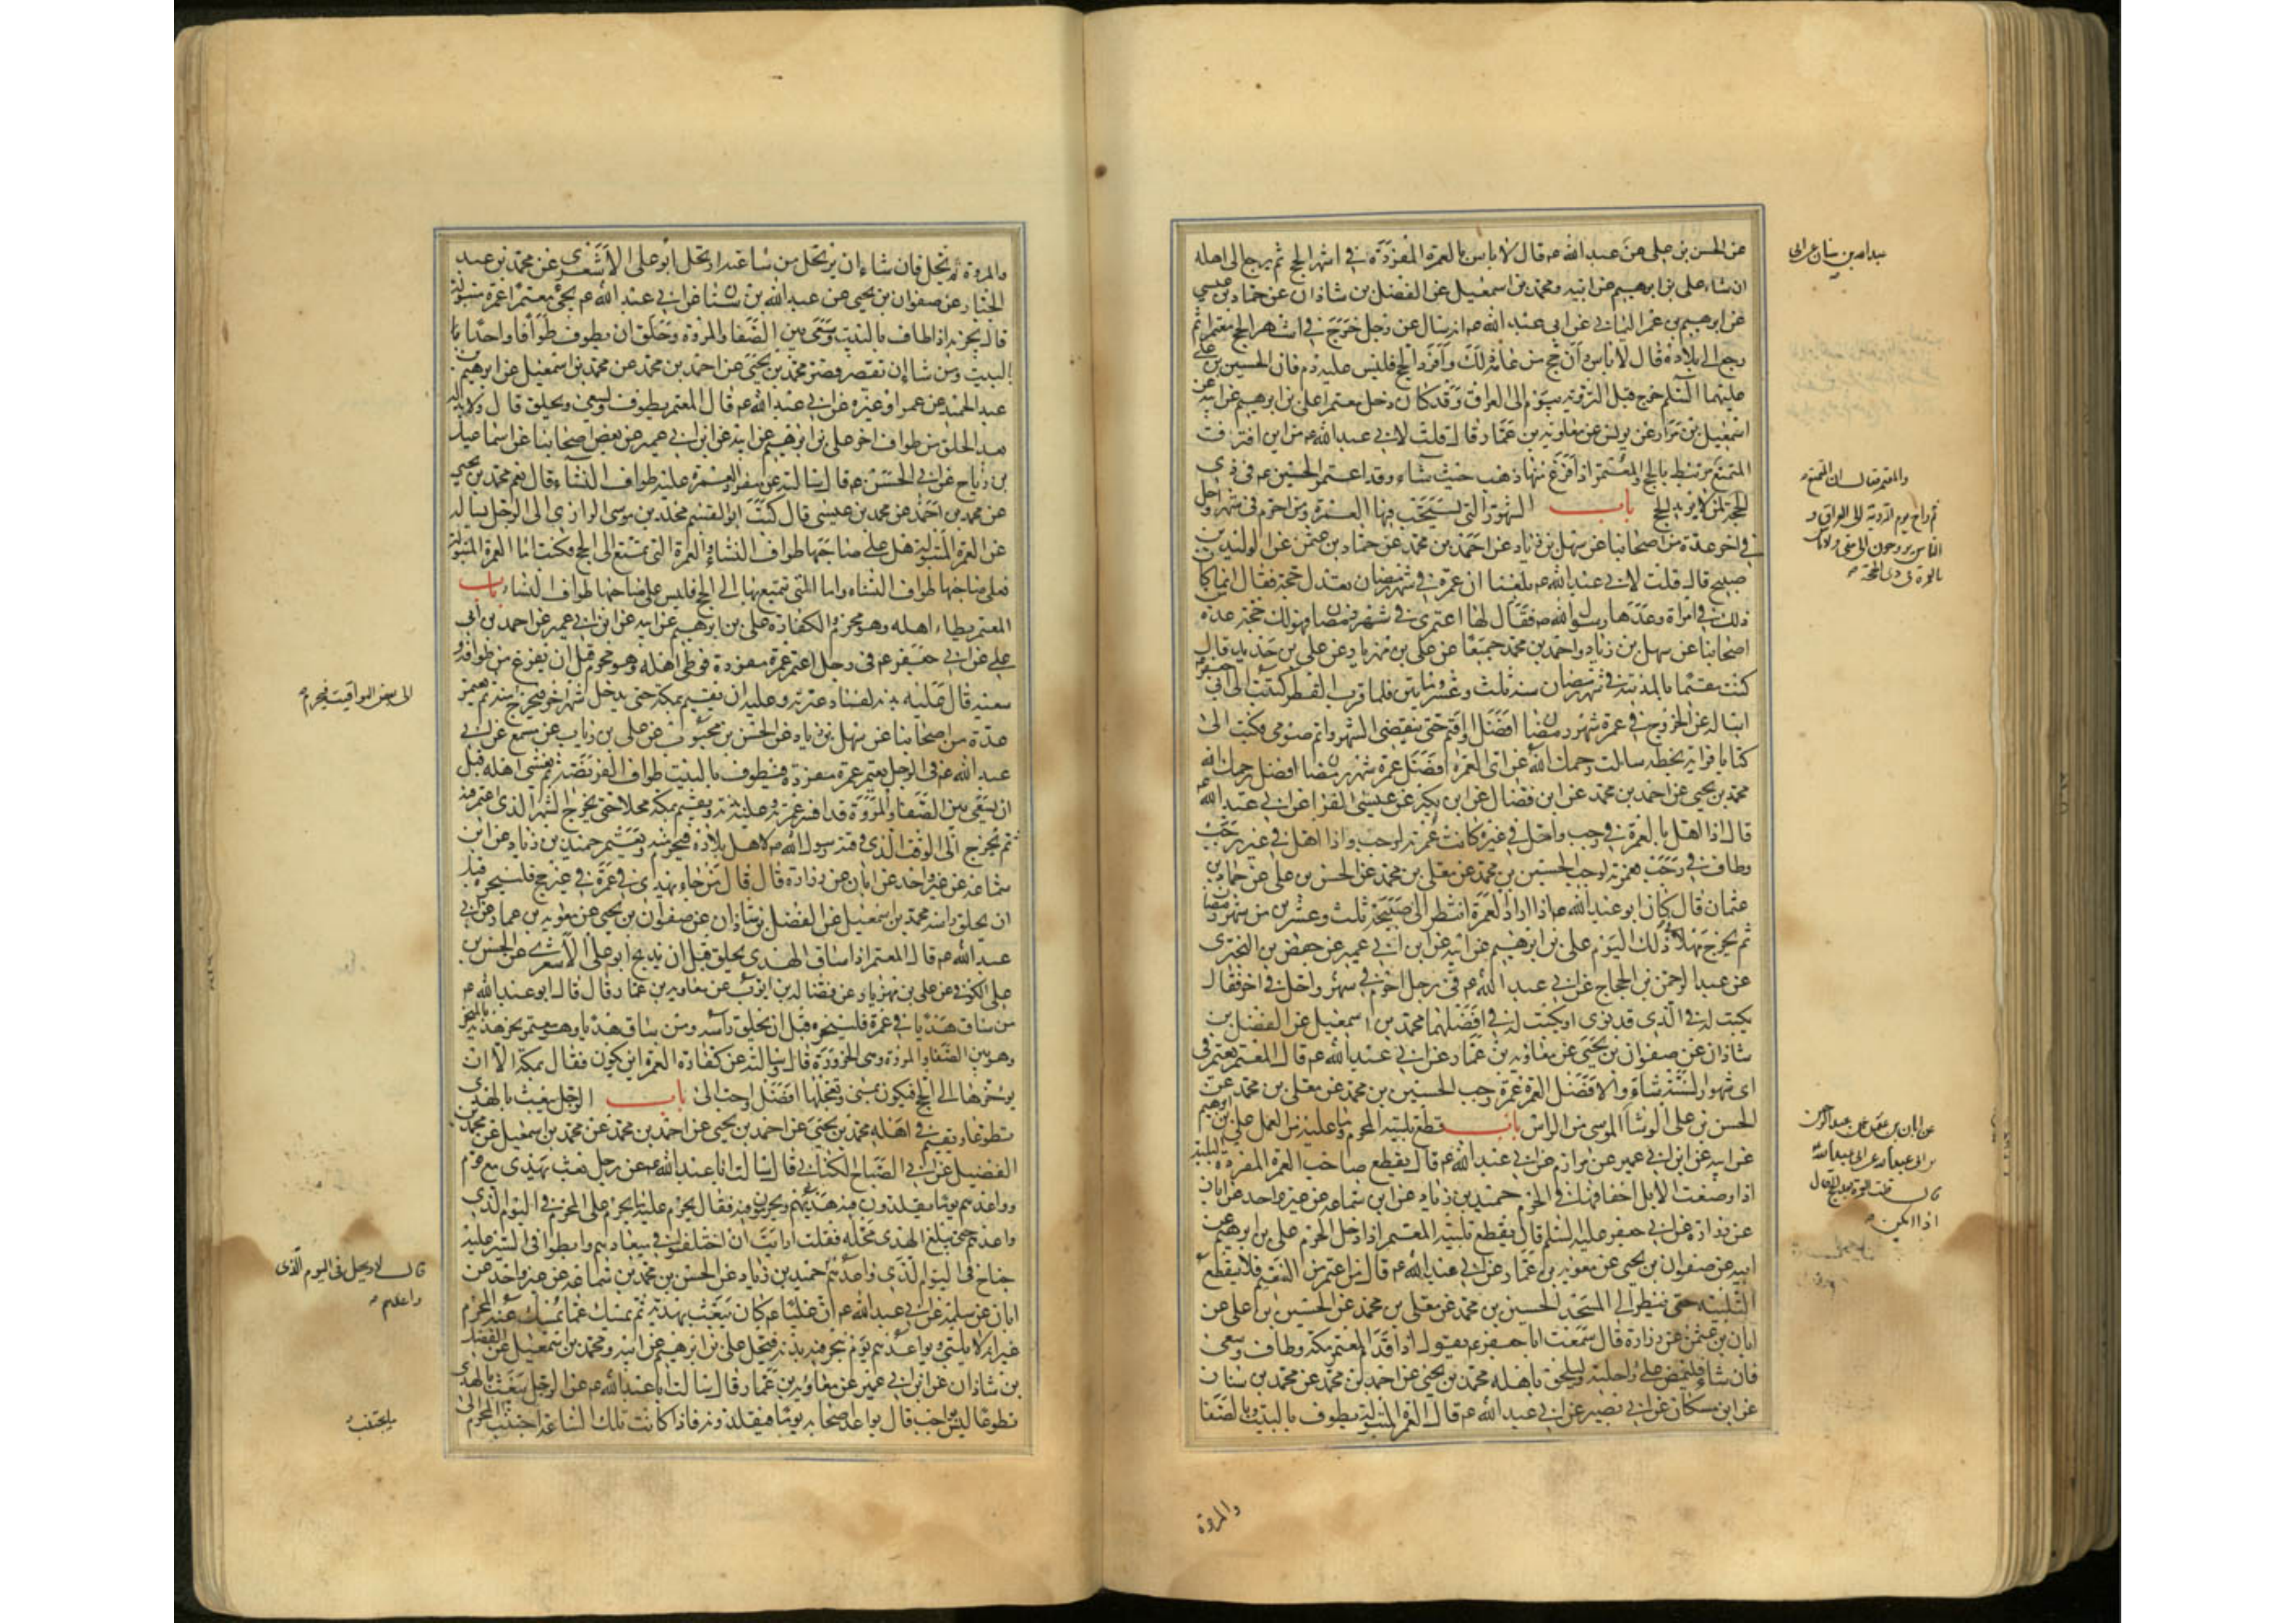 عن الحسن بن علي عن عبد الله ع قال لا باس بالعمرة المفردة في اشهر الحج ثم يرجع الى اهله
ان شاء علي بن ابرهيم عن ابيه ومحمد بن اسمعيل عن الفضل بن شاذان عن حماد بن عيسى
عن ابرهيم بن عمر اليماني عن ابي عبد الله ع انه سال عن رجل خرج في اشهر الحج معتمرا ثم
رجع الى بلاده قال لا باس وان حج من عامه ذلك وافرد الحج فليس عليه دم فان الحسين بن علي
عليهما السلم خرج قبل التروية بيوم الى العراق وقد كان دخل معتمرا علي بن ابرهيم عن ابيه عن
اسمعيل بن مرار عن يونس عن معاوية بن عمار قال قلت لابي عبد الله ع من اين افترق
المتمتع مرتبط بالحج والمعتمر اذا فرغ منها ذهب حيث شاء وقد اعتمر الحسين ع في ذي
الحجة لمن لا يريد الحج باب الشهور التي تستحب فيها العمرة ومن احرم في شهر واحل
في اخر عدة من اصحابنا عن سهل بن زياد عن احمد بن محمد عن حماد بن عثمن عن الوليد بن
صبيح قال قلت لابي عبد الله ع بلغنا ان عمرة في شهر رمضان تعدل حجة فقال انما كان
ذلك في امراة وعدها رسول الله ص فقال لها اعتمري في شهر رمضان فهو لك حجة عدة
اصحابنا عن سهل بن زياد واحمد بن محمد جميعا عن علي بن مهزيار عن علي بن حديد قال
كنت مقيما بالمدينة في شهر رمضان سنة ثلث وعشر وماتين فلما قرب الفطر كتبت الى ابي جعفر
اساله عن الخروج في عمرة شهر رمضان افضل او اقيم حتى ينقضي الشهر واتم صومي فكتب الى
كتابا قراته بخطه سالت رحمك الله عن اي العمرة افضل عمرة شهر رمضان افضل رحمك الله
محمد بن يحيى عن احمد بن محمد عن ابن فضال عن ابن بكير عن عيسى الفرا عن ابي عبد الله ع
قال اذا اهل بالعمرة في رجب واحل في غيره كانت عمرته لرجب واذا اهل في غير رجب
وطاف في رجب فعمرته لرجب الحسين بن محمد عن معلى بن محمد عن الحسن بن علي عن حماد بن
عثمان قال كان ابو عبد الله ع اذا اراد العمرة انتظر الى صبيحة ثلث وعشرين من شهر رمضان
ثم يخرج مهلا في ذلك اليوم علي بن ابرهيم عن ابيه عن ابن ابي عمير عن حفص بن البختري
عن عبد الرحمن بن الحجاج عن ابي عبد الله ع في رجل احرم في شهر واحل في اخر فقال
يكتب له في الذي قد نوى او يكتب له في افضلهما محمد بن اسمعيل عن الفضل بن
شاذان عن صفوان بن يحيى عن معاوية بن عمار عن ابي عبد الله ع قال المعتمر يعتمر في
اى شهور السنة شاء وافضل العمرة عمرة رجب الحسين بن محمد عن معلى بن محمد عن
الحسن بن علي الوشا الموسى من الراس باب قطع تلبية المحرم وما عليه من العمل علي بن ابرهيم
عن ابيه عن ابن ابي عمير عن مرازم عن ابي عبد الله ع قال يقطع صاحب العمرة المفردة التلبية
اذا وضعت الابل اخفافها في الحرم حميد بن زياد عن ابن سماعة عن غير واحد عن ابان
عن زرارة عن ابي جعفر عليه السلم قال يقطع تلبية المعتمر اذا دخل الحرم علي بن ابرهيم عن
ابيه عن صفوان بن يحيى عن معوية بن عمار عن ابي عبد الله ع قال من اعتمر من التنعيم فلا يقطع
التلبية حتى ينظر الى المسجد الحسين بن محمد عن معلى بن محمد عن الحسين بن علي عن
ابان بن عثمن عن زرارة قال سمعت ابا جعفر ع يقول اذا قدم المعتمر مكة وطاف وسعى
فان شاء فليمض على راحلته وليلحق باهله محمد بن يحيى عن احمد بن محمد عن محمد بن سنان
عن ابن مسكان عن ابي بصير عن ابي عبد الله ع قال العمرة المبتولة يطوف بالبيت وبالصفا
والمروة
عبد الله بن سنان عن ابي
والمعتمر فقال ان المتمتع
ثم راح يوم التروية الى العراق و
الناس يروحون الى منى ولا باس
بالعمرة في ذي الحجة
عن ابان بن عثمن عن عبد الرحمن
بن ابي عبد الله عن ابي عبد الله ع
قال
اذا امكن
والمروة ثم يحل فان شاء ان يرتحل من ساعته ارتحل ابو علي الاشعري عن محمد بن عبد
الجبار عن صفوان بن يحيى عن عبد الله بن سنان عن ابي عبد الله ع يجئ معتمرا عمرة مبتولة
قال يجزيه اذا طاف بالبيت وسعى بين الصفا والمروة وحلق ان يطوف طوافا واحدا با
البيت ومن شا ان يقصر قصر محمد بن يحيى عن احمد بن محمد عن محمد بن اسمعيل عن ابرهيم بن
عبد الحميد عن عمر او غيره عن ابي عبد الله ع قال المعتمر يطوف ويسعى ويحلق قال ولا بد له
بعد الحلق من طواف اخر علي بن ابرهيم عن ابيه عن ابن ابي عمير عن بعض اصحابنا عن اسماعيل
بن رباح عن ابي الحسن ع قال سالته عن مفرد العمرة عليه طواف النساء قال نعم محمد بن يحيى
عن محمد بن احمد عن محمد بن عيسى قال كتب ابو القسم مخلد بن موسى الرازي الى الرجل يساله
عن العمرة المبتولة هل على صاحبها طواف النساء والعمرة التي يتمتع الى الحج فكتب اما العمرة المبتولة
فعلى صاحبها طواف النساء واما التي يتمتع بها الى الحج فليس على صاحبها طواف النساء باب
المعتمر يطاء اهله وهو محرم والكفارة علي بن ابرهيم عن ابيه عن ابن ابي عمير عن احمد بن ابي
علي عن ابي جعفر ع في رجل اعتمر عمرة مفردة فوطى اهله وهو محرم قبل ان يفرغ من طوافه و
سعيه قال عليه بدنة لفساد عمرته وعليه ان يقيم بمكة حتى يدخل شهر اخر فيخرج منه ثم يعتمر
عدة من اصحابنا عن سهل بن زياد عن الحسن بن محبوب عن علي بن رياب عن مسمع عن ابي
عبد الله ع في الرجل يعتمر عمرة مفردة فيطوف بالبيت طواف الفريضة ثم يغشى اهله قبل
ان يسعى بين الصفا والمروة قد افسد عمرته وعليه بدنة ويقيم بمكة محلا حتى يخرج الشهر الذي اعتمر فيه
ثم يخرج الى الوقت الذي وقته رسول الله ص لاهل بلاده فيحرم منه ويعتمر حميد بن زياد عن ابن
سماعة عن غير واحد عن ابان عن زرارة قال قال من جاء بهدي في عمرة في غير حج فلينحره قبل
ان يحلق راسه محمد بن اسمعيل عن الفضل بن شاذان عن صفوان بن يحيى عن معوية بن عمار عن ابي
عبد الله ع قال المعتمر اذا ساق الهدي يحلق قبل ان يذبح ابو علي الاشعري عن الحسن بن
علي الكوفي عن علي بن مهزيار عن فضالة بن ايوب عن معاوية بن عمار قال قال ابو عبد الله ع
من ساق هديا في عمرة فلينحره قبل ان يحلق راسه ومن ساق هديا وهو معتمر نحر هديه بالمنحر
وهو بين الصفا والمروة وهي الحزورة قال وسالته عن كفارة العمرة اين يكون فقال بمكة الا ان
يؤخرها الى الحج فيكون بمنى وتعجيلها افضل واحب الى باب الرجل يبعث بالهدي
تطوعا ويقيم في اهله محمد بن يحيى عن احمد بن محمد عن محمد بن اسمعيل عن محمد بن
الفضيل عن ابي الصباح الكناني قال سالت ابا عبد الله ع عن رجل بعث بهدي مع قوم
وواعدهم يوما يقلدون فيه هديهم ويحرمون فيه فقال يحرم عليه ما يحرم على المحرم في اليوم الذي
واعدهم حتى يبلغ الهدي محله فقلت ارايت ان اختلفوا في ميعادهم وابطوا في السير عليه
جناح في اليوم الذي واعدهم حميد بن زياد عن الحسن بن محمد بن سماعة عن غير واحد عن
ابان عن سلمة عن ابي عبد الله ع ان عليا ع كان يبعث بهديه ثم يمسك عما يمسك عنه المحرم
غير انه لا يلبي ويواعدهم يوم ينحر فيه بدنه فيحل علي بن ابرهيم عن ابيه ومحمد بن اسمعيل عن الفضل
بن شاذان عن ابن ابي عمير عن معاوية بن عمار قال سالت ابا عبد الله ع عن الرجل يبعث بالهدي
تطوعا ليس بواجب قال يواعد اصحابه يوما فيقلدونه فاذا كانت تلك الساعة اجتنب المحرم الى
الى بعض المواقيت فيحرم
قال لا ويحل في اليوم الذي
واعدهم
ما يجتنب